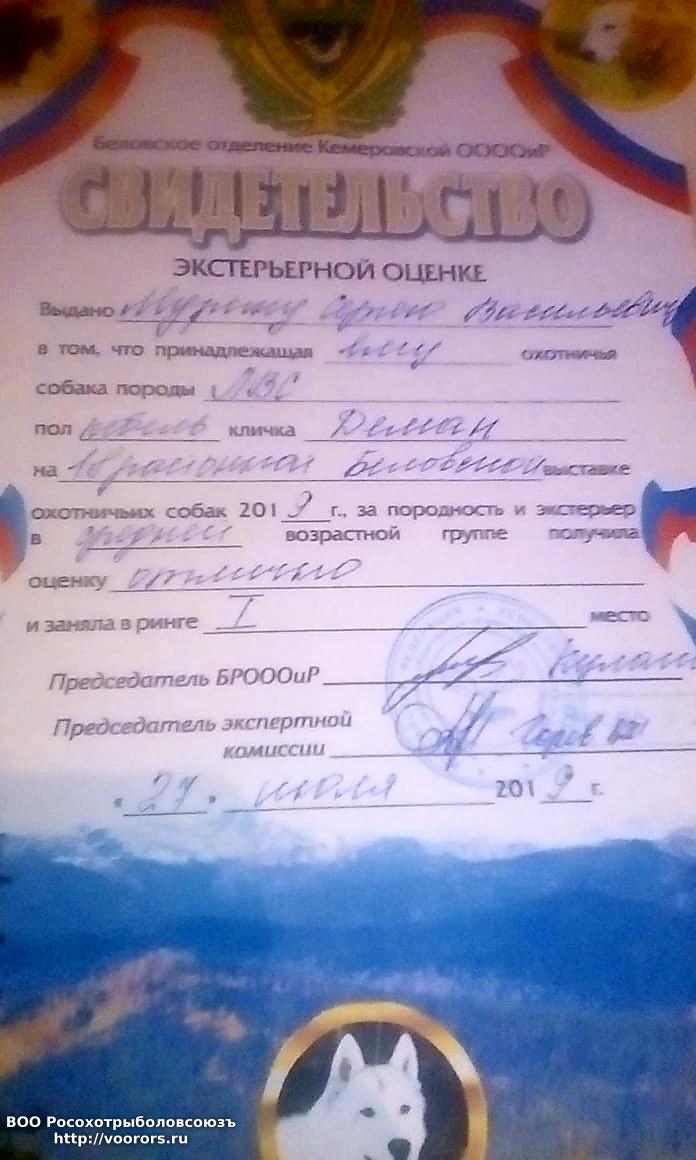 Беловское отделение Кемеровской ООООиР
СВИДЕТЕЛЬСТВО
ЭКСТЕРЬЕРНОЙ ОЦЕНКЕ
Выдано Сергею Васильевичу
в том, что принадлежащая ему охотничья
собака породы ЛВС
пол кобель кличка Деман
на 18 районной Беловской выставке
охотничьих собак 2019 г., за породность и экстерьер
в средней возрастной группе получила
оценку отлично
и заняла в ринге I место
Председатель БРОООиР
Председатель экспертной
комиссии
« 27 » июля 2019 г.
ВОО Росохотрыболовсоюзъ
http://voorors.ru